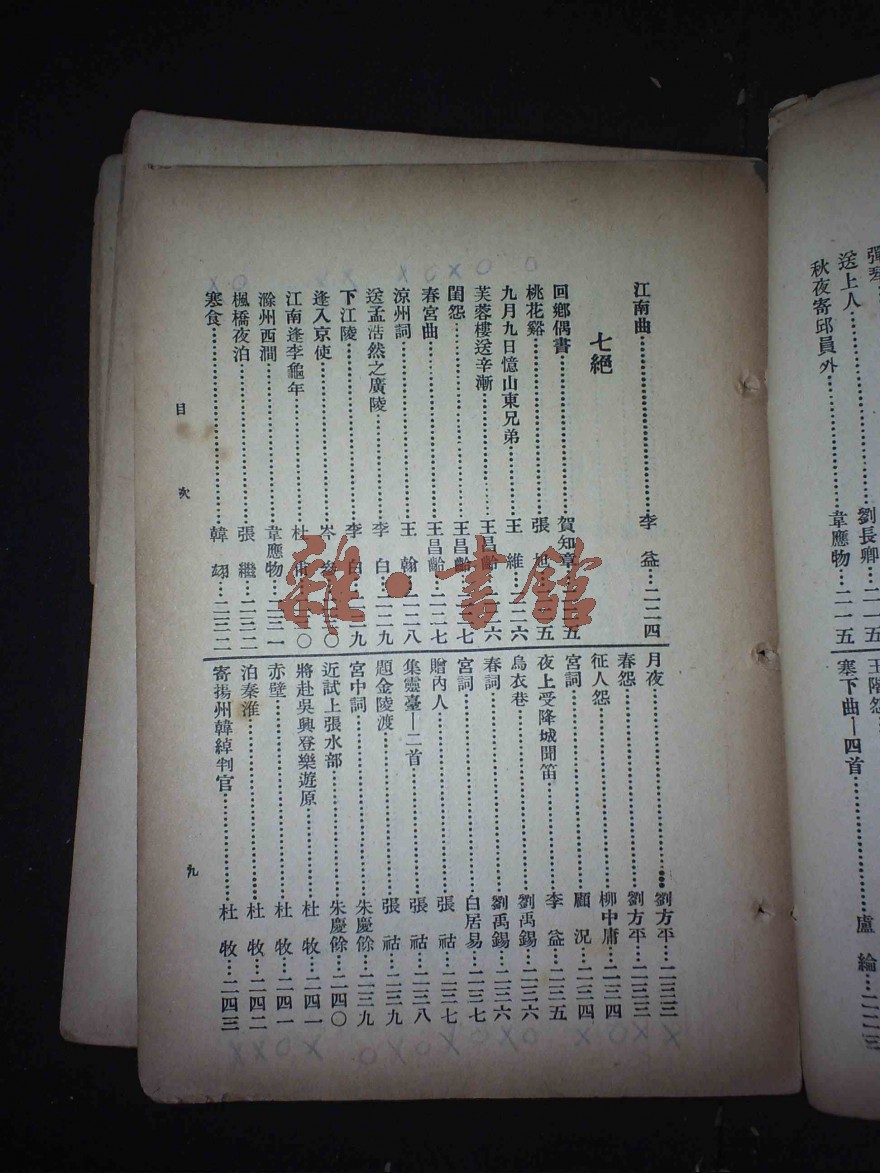 彈琴
送上人
劉長卿
二一五
秋夜寄邱員外
韋應物
二一五
玉階怨
塞下曲—四首
盧綸
二二三
江南曲
李益
二二四
七絕
回鄉偶書
賀知章
桃花谿
張旭
九月九日憶山東兄弟
王維
二二六
芙蓉樓送辛漸
王昌齡
閨怨
王昌齡
春宮曲
王昌齡
二二七
涼州詞
王翰
二二八
送孟浩然之廣陵
李白
二二九
下江陵
李白
逢入京使
岑參
江南逢李龜年
杜甫
滁州西澗
韋應物
二三一
楓橋夜泊
張繼
二三二
寒食
韓翃
二三二
月夜
劉方平
二三三
春怨
劉方平
二三三
征人怨
柳中庸
二三四
宮詞
顧況
二三四
夜上受降城聞笛
李益
二三五
烏衣巷
劉禹錫
二三六
春詞
劉禹錫
二三六
宮詞
白居易
二三七
贈內人
張祜
二三七
集靈臺—二首
張祜
二三八
題金陵渡
張祜
二三九
宮中詞
朱慶餘
二三九
近試上張水部
朱慶餘
二四〇
將赴吳興登樂遊原
杜牧
二四一
赤壁
杜牧
二四一
泊秦淮
杜牧
二四二
寄揚州韓綽判官
杜牧
二四三
目次
九
雜·書館